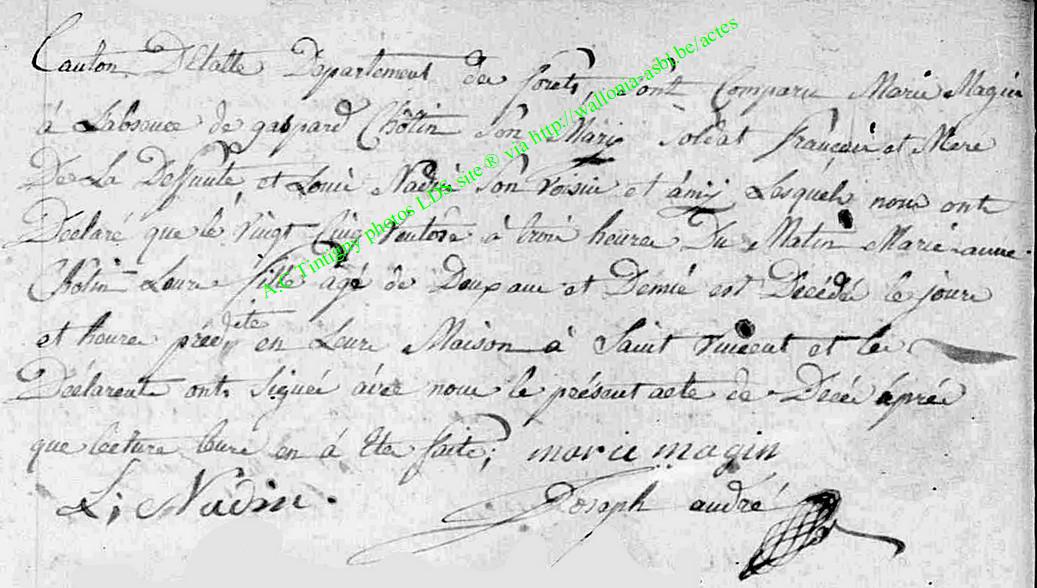 Canton D'Etalle Département des forêts, sont Comparu Marie Magin
á Labsence de gaspard Chôtin Son Mary soldat françois et Mere
De La Deffunte, et Louis Nadin Son Voisin et ámis Lesquels nous ont
Déclaré que le Vingt Cinq Ventôse à trois heures Du Matin Marie anne
Chôtin Leure fille agé de Doux ans et Demie est Décédée le joure
et heure prédite en Leure Maison à Saint Vincent et les
Déclarent onts Signés ávec nous le présent acte de Décés áprés
que lecture leure en à Eté faite, marie magin
L; Nadin.
Joseph andré
A.E Tintigny photos LDS site ® via http://wallonia-asbl.be/actes